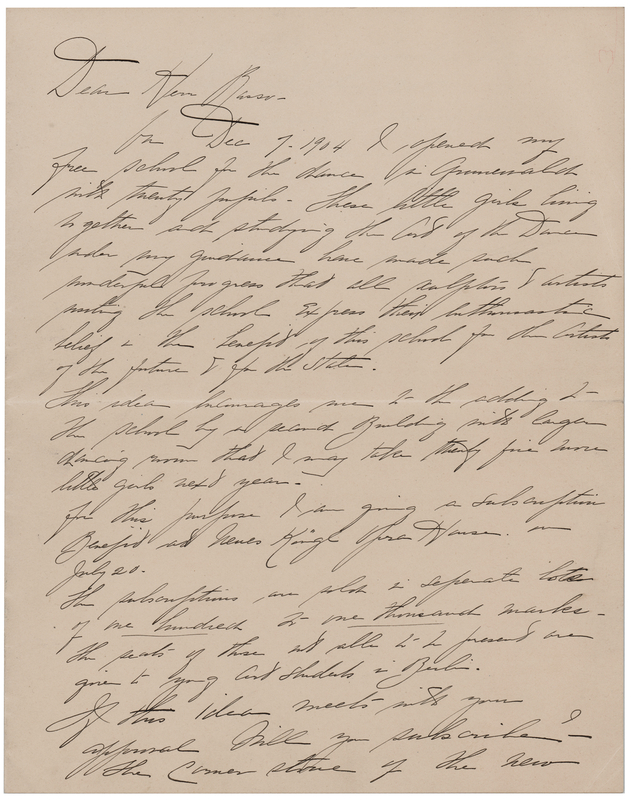 Dear Herr
On Dec 7-1904 I opened my
free school for the dance in Grunewald
with twenty pupils - these little girls living
together and studying the Art of the Dance
under my guidance have made such
wonderful progress that all sculptors & artists
visiting the school express their enthusiastic
belief in the benefit of this school for the Artists
of the future & for the State.
This idea encourages me to the adding to
the school by a second Building with larger
dancing room that I may take thirty five more
little girls next year -
for this purpose I am giving a subscription
Benefit at Neues Königl Opera House. on
July 20.
The subscriptions are sold in seperate lots
of one hundred to one thousand marks -
the seats of those not able to be present are
given to young Art Students in Berlin.
If this idea meets with your
approval Will you subscribe? -
The corner stone of the new